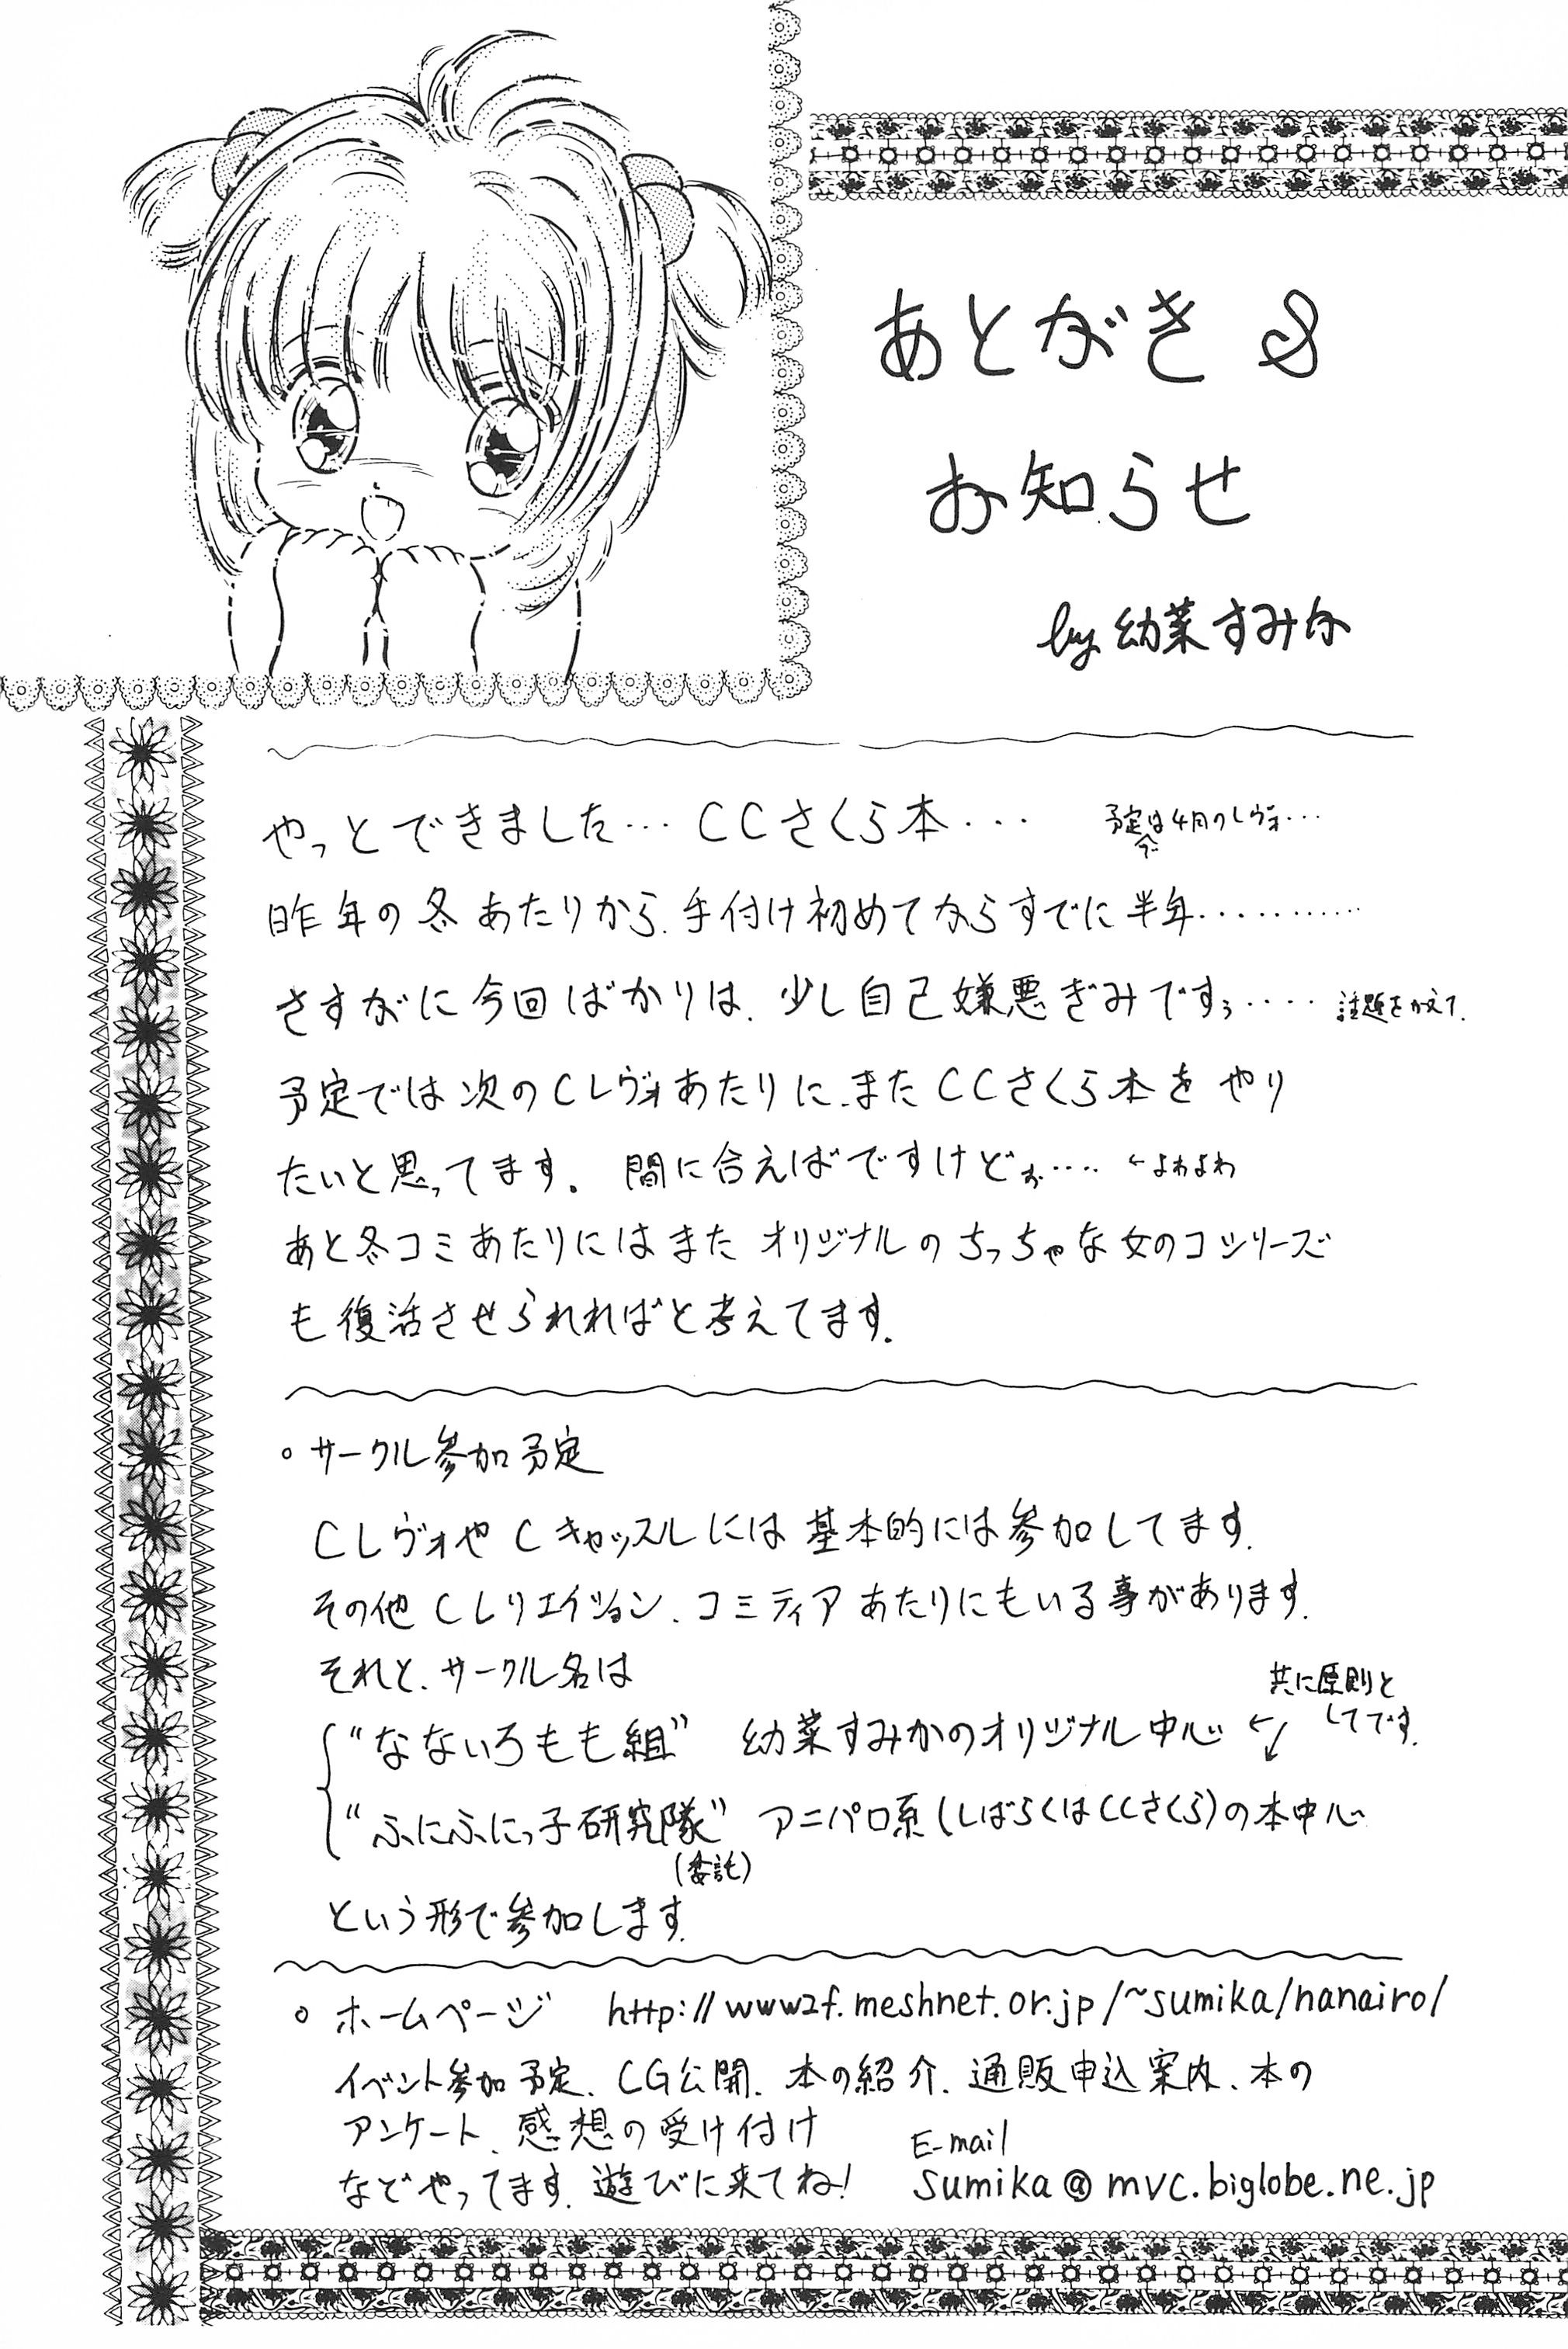 あとがき &
お知らせ
by 幼菜すみか
やっとできました… CCさくら本… 予定では4月のレヴォ…
昨年の冬あたりから、手付け初めてからすでに半年…………
さすがに今回ばかりは、少し自己嫌悪ぎみですぅ…. 話題をかえて、
予定では次のCレヴォあたりに、またCCさくら本をやり
たいと思ってます。間に合えばですけどぉ…. ←よわよわ
あと冬コミあたりにはまたオリジナルのちっちゃな女のコシリーズ
も復活させられればと考えてます。
○サークル参加予定
CレヴォやCキャッスルには基本的には参加してます。
その他Cレリエイション、コミティアあたりにもいる事があります。
それと、サークル名は
“なないろもも組” 幼菜すみかのオリジナル中心 ← 共に原則と
してです。
“ふにふにっ子研究隊” アニパロ系(しばらくはCCさくら)の本中心
(委託)
という形で参加します。
○ホームページ http://www2f.meshnet.or.jp/~sumika/nanairo/
イベント参加予定、CG公開、本の紹介、通販申込案内、本の
アンケート、感想の受け付け
などやってます。遊びに来てね!
E-mail
sumika@mvc.biglobe.ne.jp